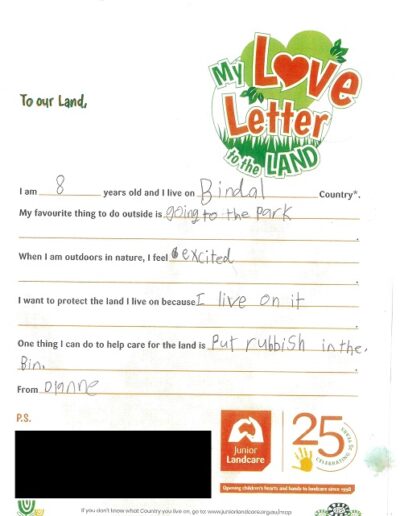 My Love
Letter
to the LAND
To our Land,
I am 8 years old and I live on Bindal Country*.
My favourite thing to do outside is going to the park
.
When I am outdoors in nature, I feel excited
.
I want to protect the land I live on because I live on it
.
One thing I can do to help care for the land is Put rubbish in the.
Bin.
From
P.S.
Junior
Landcare
25 YEARS
CELEBRATING
Opening children's hearts and hands to landcare since 1998
If you don't know what Country you live on, go to: www.juniorlandcare.org.au/map